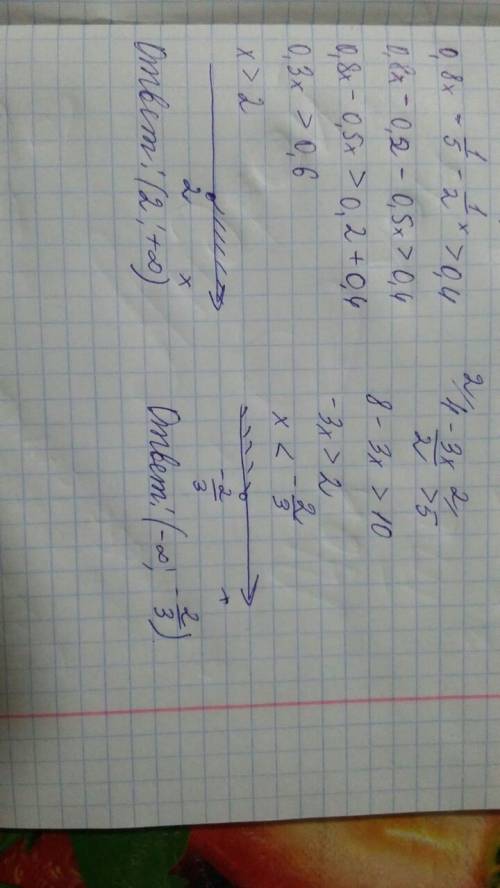 0,8x - 1/5 - 1/2 x > 0,4
0,8x - 0,2 - 0,5x > 0,4
0,8x - 0,5x > 0,2 + 0,4
0,3x > 0,6
x > 2
2 x
Ответ: (2; +∞)
2/ 4 - 3x/2 2/ > 5
8 - 3x > 10
-3x > 2
x < -2/3
-2/3 x
Ответ: (-∞; -2/3)